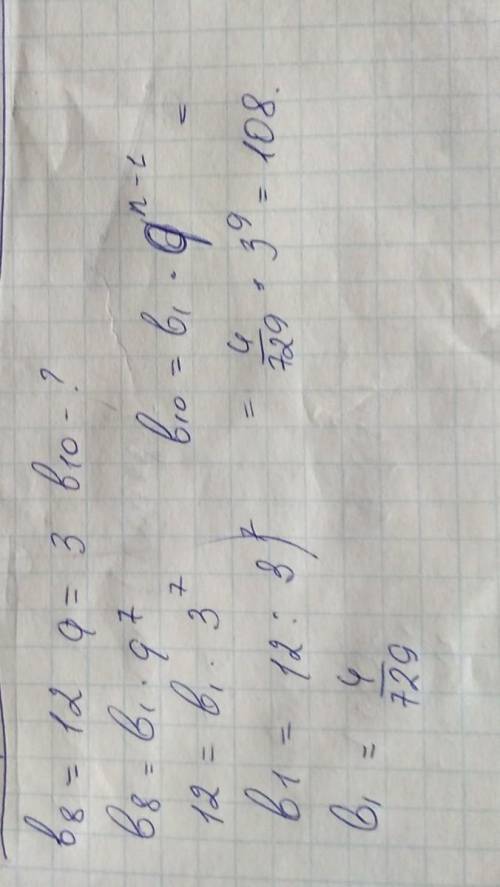 b₈ = 12 q = 3 b₁₀ - ?
b₈ = b₁ · q⁷
12 = b₁ · 3⁷
b1 = 12 : 3⁷
b₁ = 4/729
b₁₀ = b₁ · qⁿ⁻¹ =
= 4/729 · 3⁹ = 108.